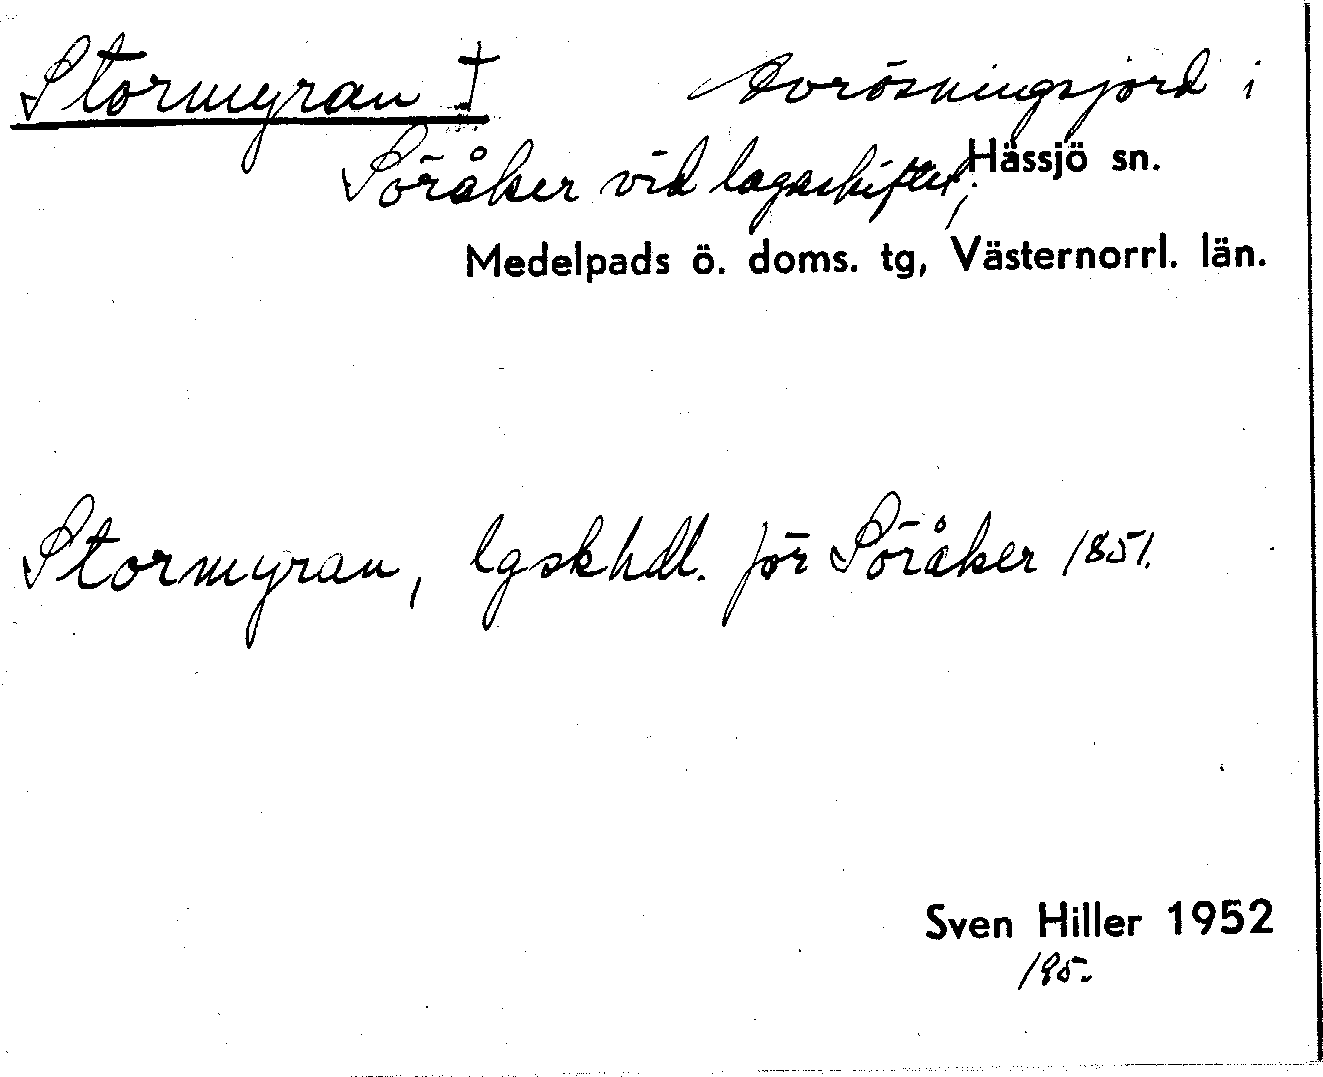 Stormyran † Avrösningsjord i
Söråker vid lagaskiftet, Hässjö sn.
Medelpads ö. doms. tg, Västernorrl. län.
Stormyran, lgskhdl. för Söråker 1851.
Sven Hiller 1952
195.